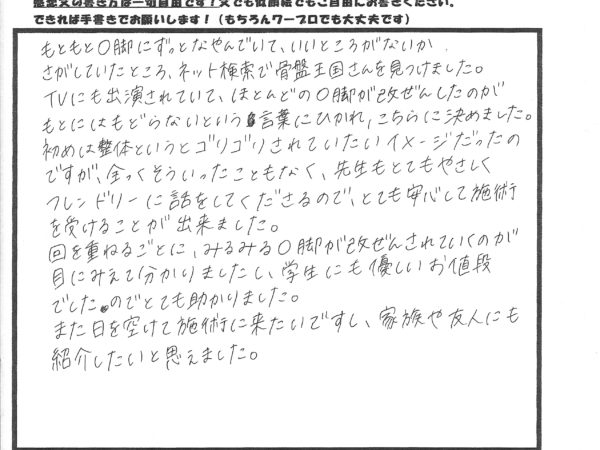 できれば手書きでお願いします！（もちろんワープロでも大丈夫です）
もともとO脚にずっとなやんでいて、いいところがないか
さがしていたところ、ネット検索で骨盤王国さんを見つけました。
TVにも出演されていて、ほとんどのO脚が改ぜんしたのが
もとにはもどらないという言葉にひかれ、こちらに決めました。
初めは整体というとゴリゴリされていたいイメージだったの
ですが、全くそういったこともなく、先生もとてもやさしく
フレンドリーに話をしてくださるので、とても安心して施術
を受けることが出来ました。
回を重ねるごとに、みるみるO脚が改ぜんされていくのが
目にみえて分かりましたし、学生にも優しいお値段
でしたのでとても助かりました。
また日を空けて施術に来たいですし、家族や友人にも
紹介したいと思えました。